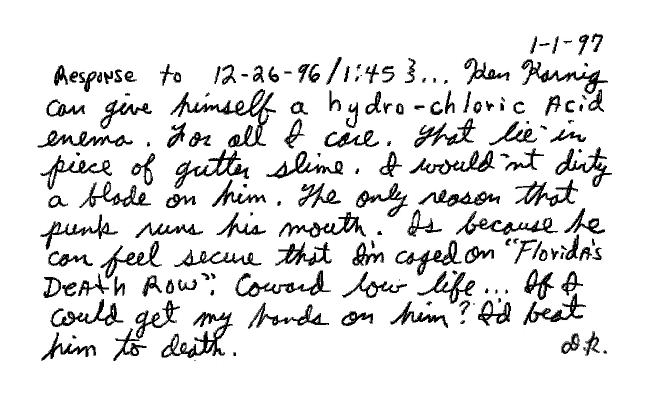 1-1-97
Response to 12-26-96/1:45 }... Ken Kornig
can give himself a hydro-chloric Acid
enema. For all I care. That lie-in
piece of gutter slime. I would'nt dirty
a blade on him. The only reason that
punk runs his mouth. Is because he
can feel secure that I'm caged on "Florida's
Death Row". Coward low life... If I
could get my hands on him? I'd beat
him to death. D.R.